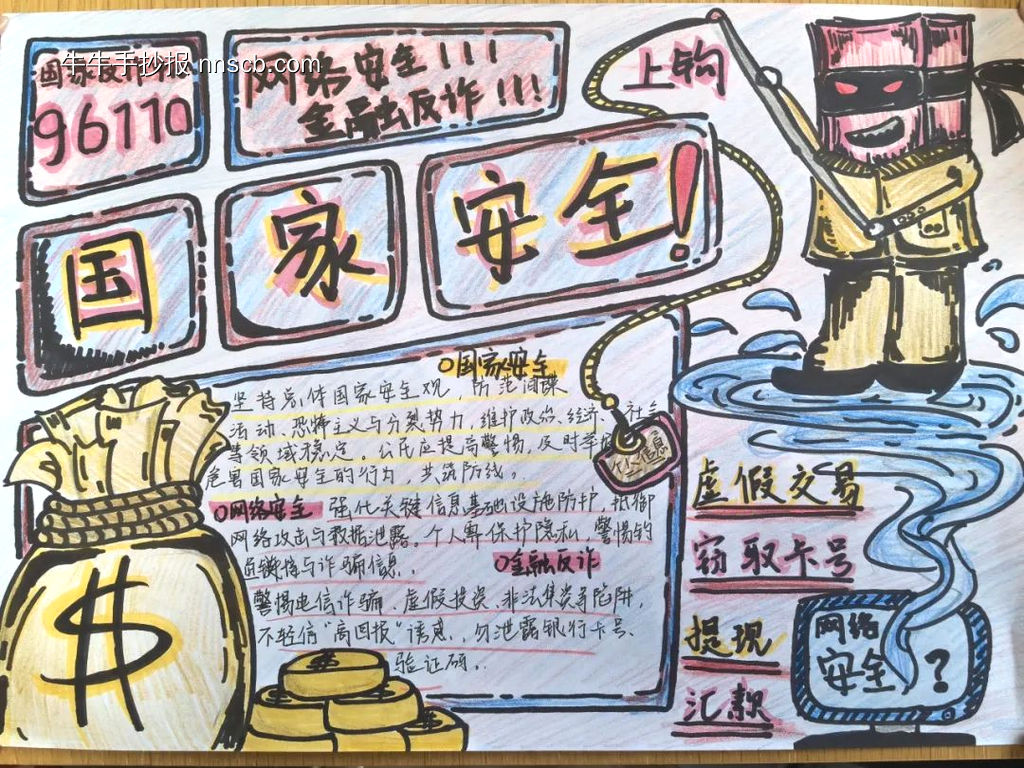 牛牛手抄报 nnscb.com
国家反诈
96110
网络安全!!!
金融反诈!!!
上钩
国家安全!
国家安全
坚持总体国家安全观,防范间谍
活动、恐怖主义与分裂势力,维护政治、经济、社会
等领域稳定。公民应提高警惕,及时举报
危害国家安全的行为,共筑防线。
个人信息
网络安全 强化关键信息基础设施防护,抵御
网络攻击与数据泄露。个人需保护隐私,警惕钓
鱼链接与诈骗信息。
金融反诈
警惕电信诈骗、虚假投资、非法集资等陷阱,
不轻信“高回报”诱惑,勿泄露银行卡号、
验证码。
虚假交易
窃取卡号
提现
汇款
网络
安全?
$